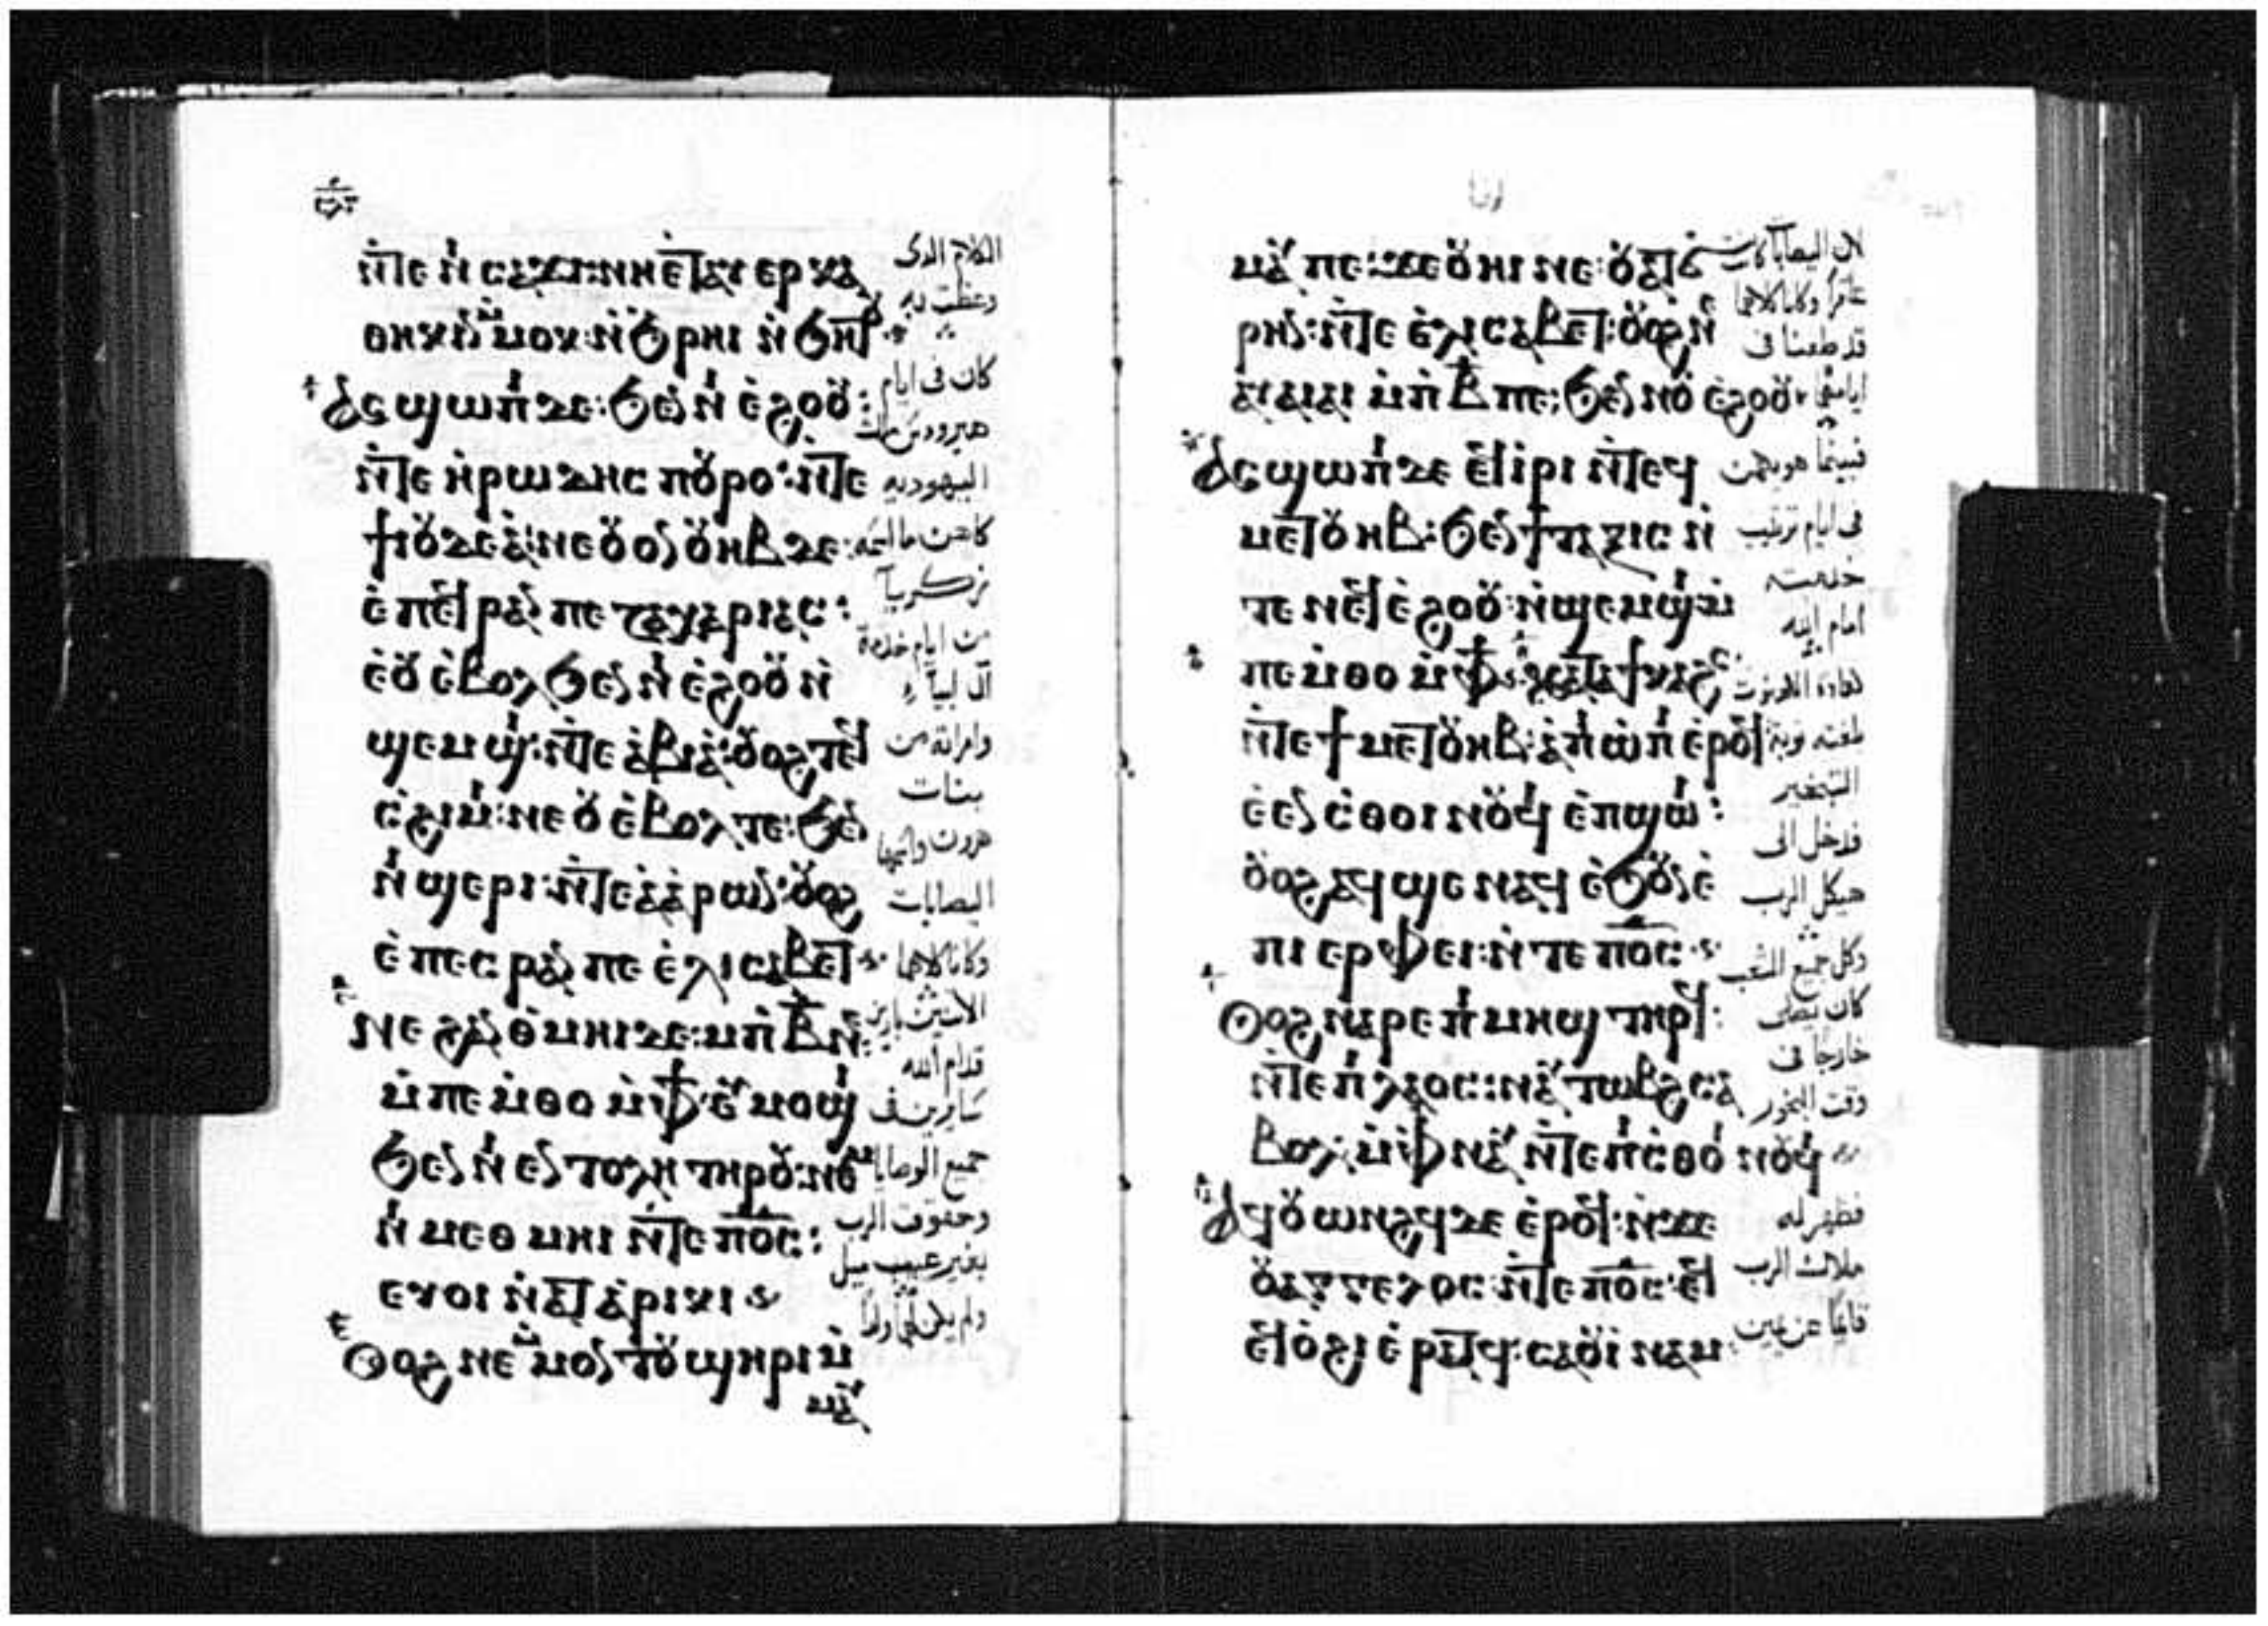 ⲛ̇ⲧⲉ ⲛⲓ ⲥⲁϫⲓ: ⲛⲏ ⲉ̇ⲧⲁⲩ ⲉⲣ ⲕⲁ
ⲑⲏⲕⲓⲛ ⲙ̇ⲙⲟⲕ: ⲛ̇ϧⲣⲏⲓ ⲛ̇ϧⲏⲧⲟⲩ
ⲁⲥϣⲱⲡⲓ ⲇⲉ: ϧⲉⲛ ⲛⲓ ⲉ̇ϩⲟⲟⲩ:
ⲛ̇ⲧⲉ ⲏ̇ⲣⲱⲇⲏⲥ ⲡⲟⲩⲣⲟ: ⲛ̇ⲧⲉ
ϯⲓⲟⲩⲇⲉⲁ̇: ⲛⲉ ⲟⲩⲟⲛ ⲟⲩⲏⲃ ⲇⲉ:
ⲉ̇ ⲡⲉϥ ⲣⲁⲛ ⲡⲉ ⲍⲁⲭⲁⲣⲓⲁⲥ:
ⲉ̇ⲟⲩ ⲉ̇ⲃⲟⲗ ϧⲉⲛ ⲛⲓ ⲉ̇ϩⲟⲟⲩ ⲛ̇
ϣⲉⲙϣⲓ: ⲛ̇ⲧⲉ ⲁ̇ⲃⲓⲁ̇: ⲟⲩⲟϩ ⲧⲉϥ
ⲥ̇ϩⲓⲙⲓ: ⲛⲉ ⲟⲩ ⲉ̇ⲃⲟⲗ ⲧⲉ: ϧⲉⲛ
ⲛⲓ ϣⲉⲣⲓ: ⲛ̇ⲧⲉ ⲁ̇ⲁ̇ⲣⲱⲛ: ⲟⲩⲟϩ
ⲉ̇ ⲡⲉⲥ ⲣⲁⲛ ⲡⲉ ⲉ̇ⲗⲓⲥⲁⲃⲉⲧ
ⲛⲉ ϩⲁⲛ ⲑ̇ⲙⲏⲓ ⲇⲉ: ⲙⲡ̇ ⲃ̅ ⲛⲉ:
ⲙ̇ⲡⲉⲙ̇ⲑⲟ ⲙ̇ⲫϯ: ⲉⲩ ⲙⲟϣⲓ
ϧⲉⲛ ⲛⲓ ⲉⲛⲧⲟⲗⲏ ⲧⲏⲣⲟⲩ: ⲛⲉⲙ
ⲛⲓ ⲙⲉⲑⲙⲏⲓ ⲛ̇ⲧⲉ ⲡ̅ⲟ̅ⲥ̅:
ⲉⲩⲟⲓ ⲛ̇ⲁⲧ ⲁ̇ⲣⲓⲕⲓ
ⲟⲩⲟϩ ⲛⲉ ⲙ̇ⲙⲟⲛ ⲧⲟⲩ ϣⲏⲣⲓ ⲙ̇
ⲙⲁⲩ
الكلام الدى
وعظت به
كان فى ايام
هيرودس ملك
اليهوديه
كاهن
زكريا
من ايام خدمة
آل ابيا
وامراته من
بنات
هرون واسمها
اليصابات
وكانا كلاهما
قدام الله
سايرين فى
جميع الوصايا
وحقوق الرب
بغير عيب
ولم يكن
ⲙⲁⲩ ⲡⲉ: ϫⲉ ⲟⲩⲏⲓ ⲛⲉ: ⲟⲩⲁⲧϭ
ⲣⲏⲛ: ⲛ̇ⲧⲉ ⲉ̇ⲗⲓⲥⲁⲃⲉⲧ: ⲟⲩⲟϩ ⲛⲉ
ⲁⲩⲁⲓⲁⲓ ⲙ̇ⲡ̇ ⲃ̅ ⲡⲉ: ϧⲉⲛ ⲛⲟⲩ ⲉ̇ϩⲟⲟⲩ
ⲁⲥϣⲱⲡⲓ ⲇⲉ ⲉⲧⲓ̇ⲣⲓ ⲛ̇ⲧⲉϥ
ⲙⲉⲧⲟⲩⲏⲃ: ϧⲉⲛ ϯⲧⲁⲝⲓⲥ ⲛ̇
ⲧⲉ ⲛⲉϥ ⲉ̇ϩⲟⲟⲩ: ⲛ̇ϣⲉⲙϣⲓ: ⲙ̇
ⲡⲉⲙ̇ⲑⲟ ⲙ̇ⲫϯ: ⲕⲁⲧⲁ ϯⲕⲁϩⲥ:
ⲛ̇ⲧⲉ ϯⲙⲉⲧⲟⲩⲏⲃ: ⲁϥⲓ̇ ⲱ̇ⲡⲓ ⲉ̇ⲣⲟϥ
ⲉ̇ⲉⲛ ⲥ̇ⲑⲟⲓⲛⲟⲩϥⲓ ⲉ̇ⲡϣⲱⲓ:
ⲟⲩⲟϩ ⲁϥϣⲉ ⲛⲁϥ ⲉ̇ϧⲟⲩⲛ ⲉ̇
ⲡⲓ ⲉⲣⲫⲉⲓ: ⲛ̇ⲧⲉ ⲡ̅ⲟ̅ⲥ̅
ⲟⲩⲟϩ ⲛⲁⲣⲉ ⲡⲓ ⲙⲏϣ ⲧⲏⲣϥ:
ⲛ̇ⲧⲉ ⲡⲓ ⲗⲁⲟⲥ: ⲛⲁⲩ ⲧⲱⲃϩ ⲥⲁ
ⲃⲟⲗ: ⲙ̇ⲫⲛⲁⲩ ⲛ̇ⲧⲉ ⲡⲓ ⲥ̇ⲑⲟⲓⲛⲟⲩϥⲓ
ⲁϥⲟⲩⲱⲛϩϥ ⲇⲉ ⲉ̇ⲣⲟϥ: ⲛ̇ϫⲉ
ⲟⲩⲁⲅⲅⲉⲗⲟⲥ: ⲛ̇ⲧⲉ ⲡ̅ⲟ̅ⲥ̅: ⲉϥ
ⲉϥⲟ̇ϩⲓ ⲉ̇ⲣⲁⲧϥ: ⲥⲁⲟⲩⲓ̇ⲛⲁⲙ
لان اليصابات كانت
عاقرا وكانا كلاهما
قد طعنا فى
ايامهما
فبينما هو يكهن
فى ايام ترتيب
خدمته
امام الله
كعادة الكهنوت
التبخير
فدخل الى
هيكل الرب
وكل جميع الشعب
كان يصلى
خارجا فى
وقت البخور
فظهر له
ملاك الرب
قايما عن يمين